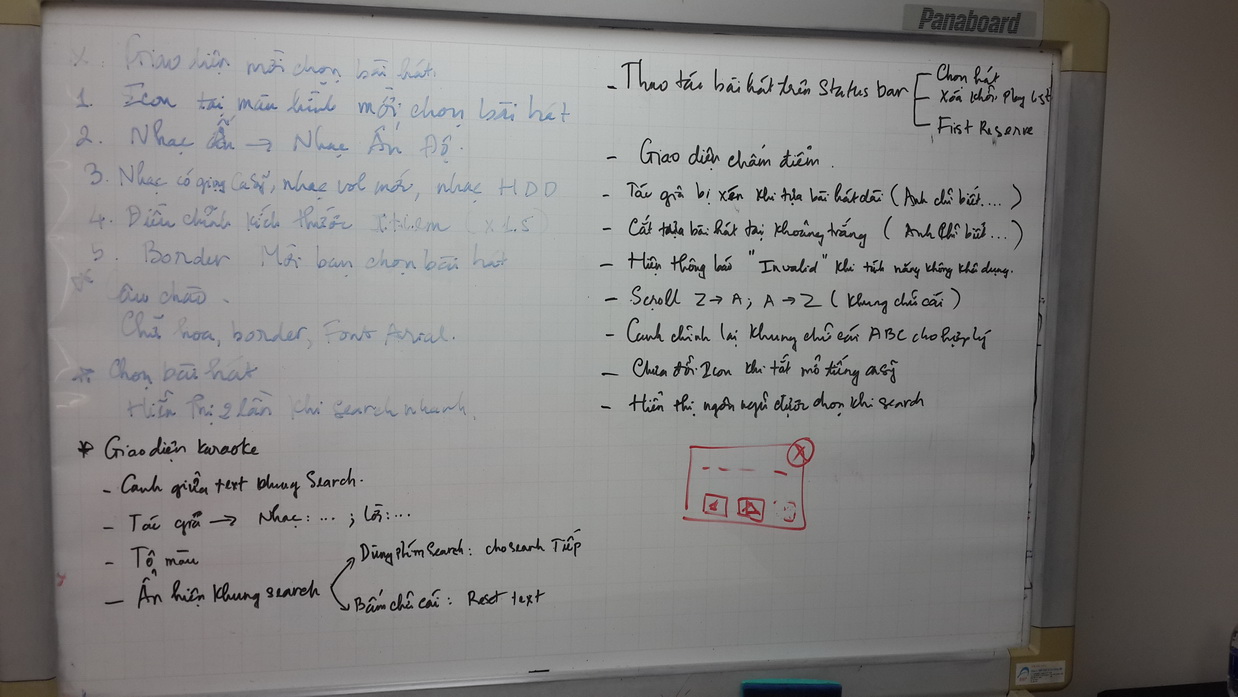 Panaboard
X. Giao diện mời chọn bài hát.
1. Icon tại màn hình mời chọn bài hát
2. Nhạc ấn → Nhạc Ấn Độ.
3. Nhạc có giọng Ca Sỹ, nhạc vol mới, nhạc HDD
4. Điều chỉnh kích thước (x1.5)
5. Border Mời bạn chọn bài hát
* Câu chào.
Chữ hoa, border, Font Arial.
* Chọn bài hát
Hiển thị 2 lần khi search nhanh.
* Giao diện karaoke
- Canh giữa text khung Search.
- Tác giả → Nhạc: ... ; Lời: ...
- Tô màu
- Ẩn hiện khung search
Dùng phím Search: cho search Tiếp
Bấm chữ cái: Reset text
- Thao tác bài hát trên Status bar
Chọn hát
Xóa khỏi Play List
Fist Reserve
- Giao diện chấm điểm.
- Tác giả bị xén khi tựa bài hát dài (Anh chỉ biết....)
- Cắt tựa bài hát tại khoảng trắng (Anh chỉ biết...)
- Hiện thông báo "Invalid" khi tính năng không khả dụng.
- Scroll Z → A; A → Z (khung chữ cái)
- Canh chỉnh lại khung chữ cái ABC cho hợp lý
- Chưa đổi Icon khi tắt mở tiếng ca sỹ
- Hiển thị ngôn ngữ được chọn khi search
X